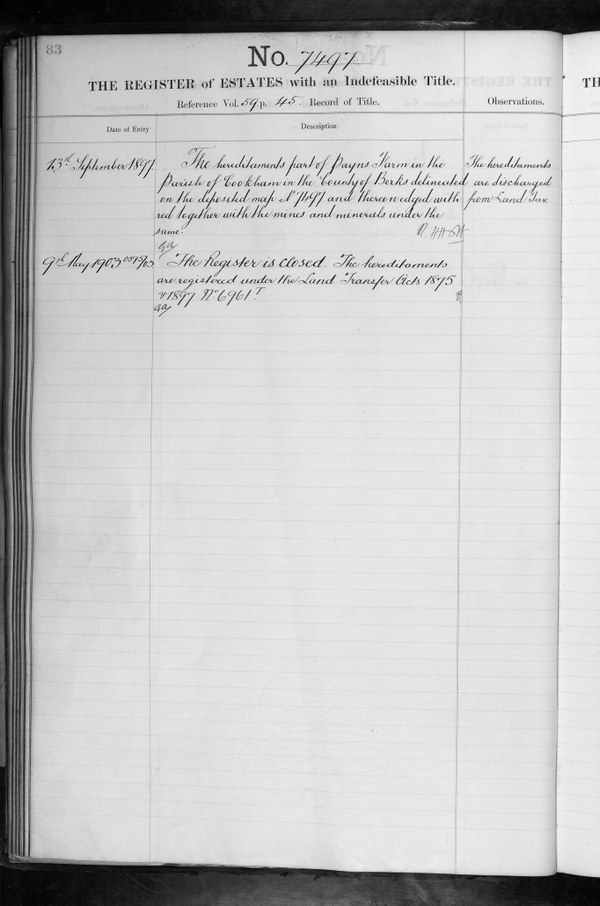 83
No. 7497
THE REGISTER of ESTATES with an Indefeasible Title.
Reference Vol. 59 p. 45. Record of Title.
Observations.
Date of Entry
Description
13th September 1897
The hereditaments part of Payns Farm in the
Parish of Cookham in the County of Berks delineated
on the deposited map No 7497 and thereon edged with
red together with the mines and minerals under the
same.
The hereditaments
are discharged
from Land Tax
9th May 1903
The Register is closed. The hereditaments
are registered under the Land Transfer Acts 1875
& 1897 No 6961
TH